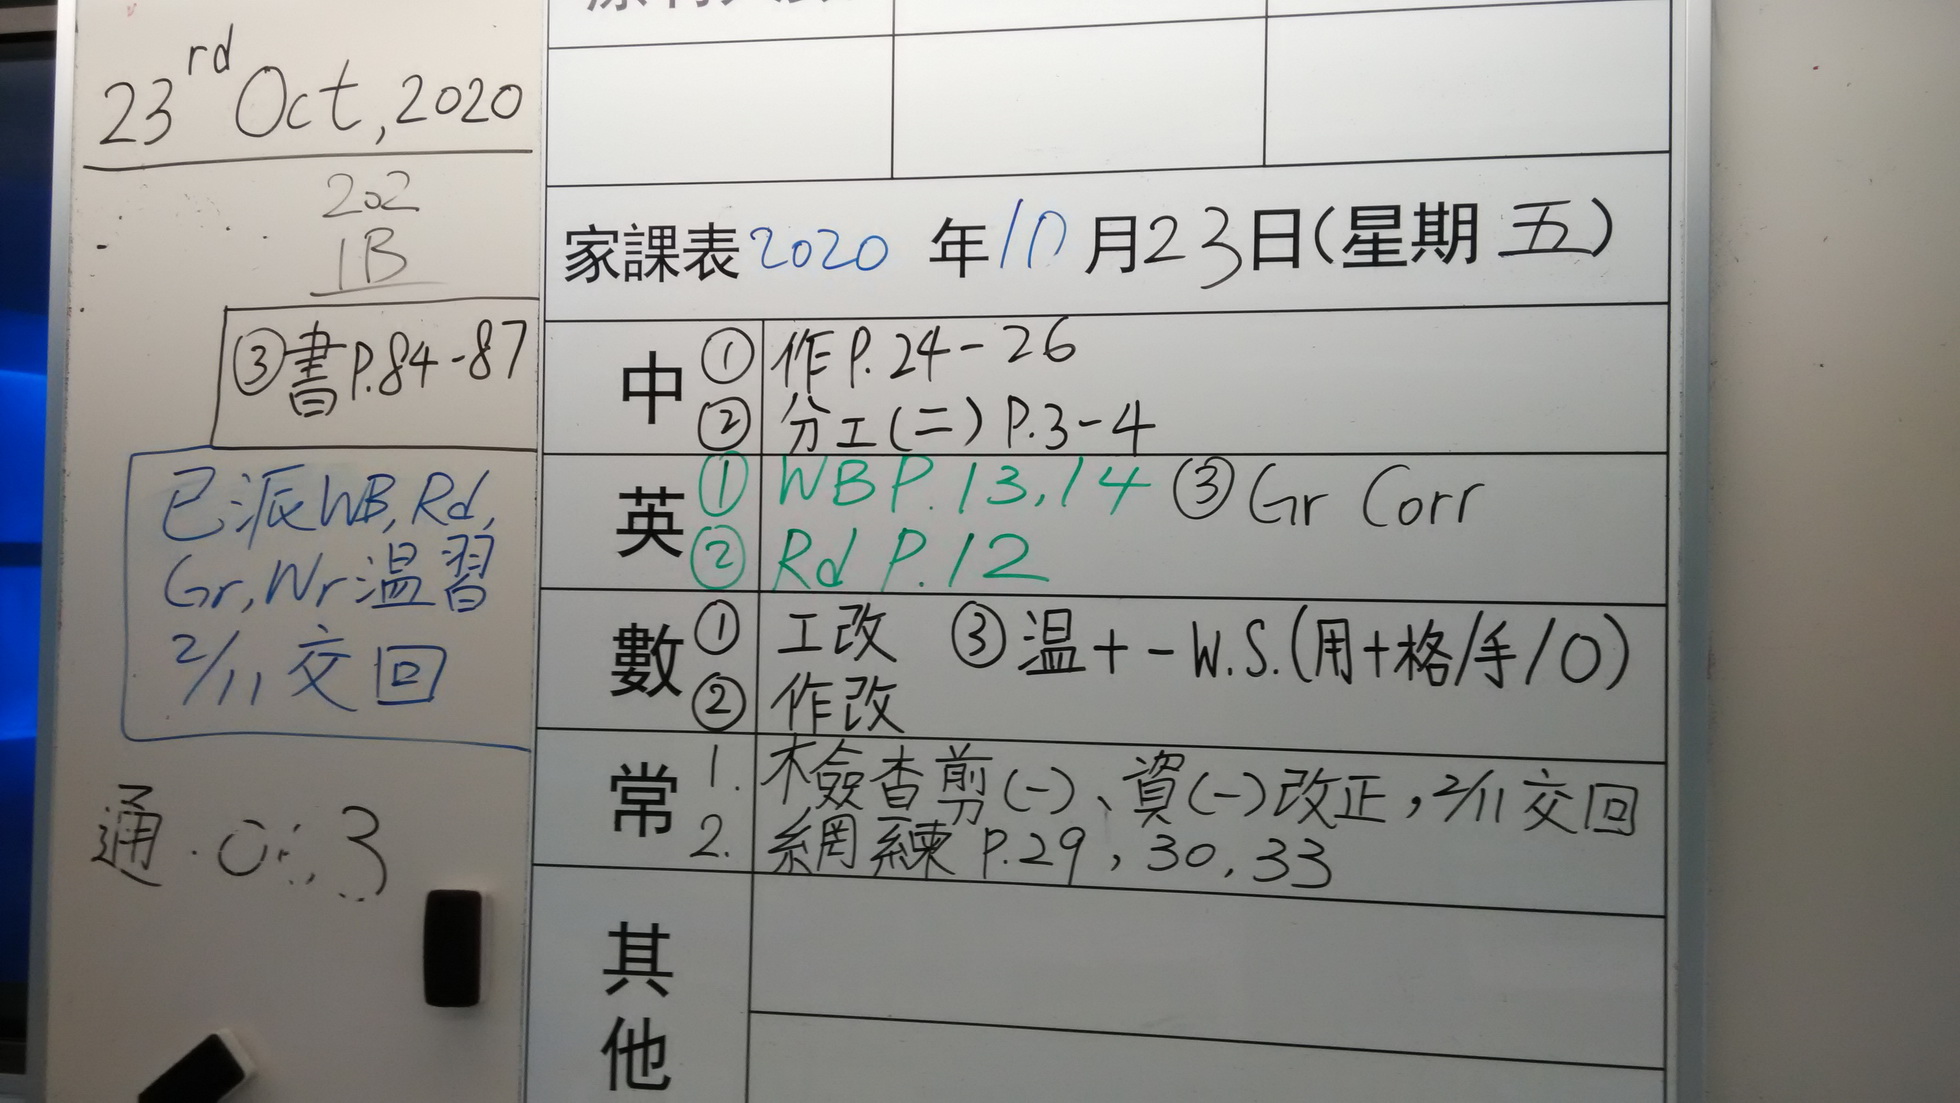 23rd Oct, 2020
202
1B
③書P.84-87
已派WB, Rd,
Gr, Wr溫習
2/11 交回
通.
家課表2020 年10月23日(星期五)
中
① 作P.24-26
② 分工(二) P.3-4
英
① WB P.13,14 ③ Gr Corr
② Rd P.12
數
① 工改 ③溫+-W.S.(用+格/手/O)
② 作改
常
1. 木檢查剪(一)、資(一)改正,2/11交回
2. 網練 P.29,30,33
其
他